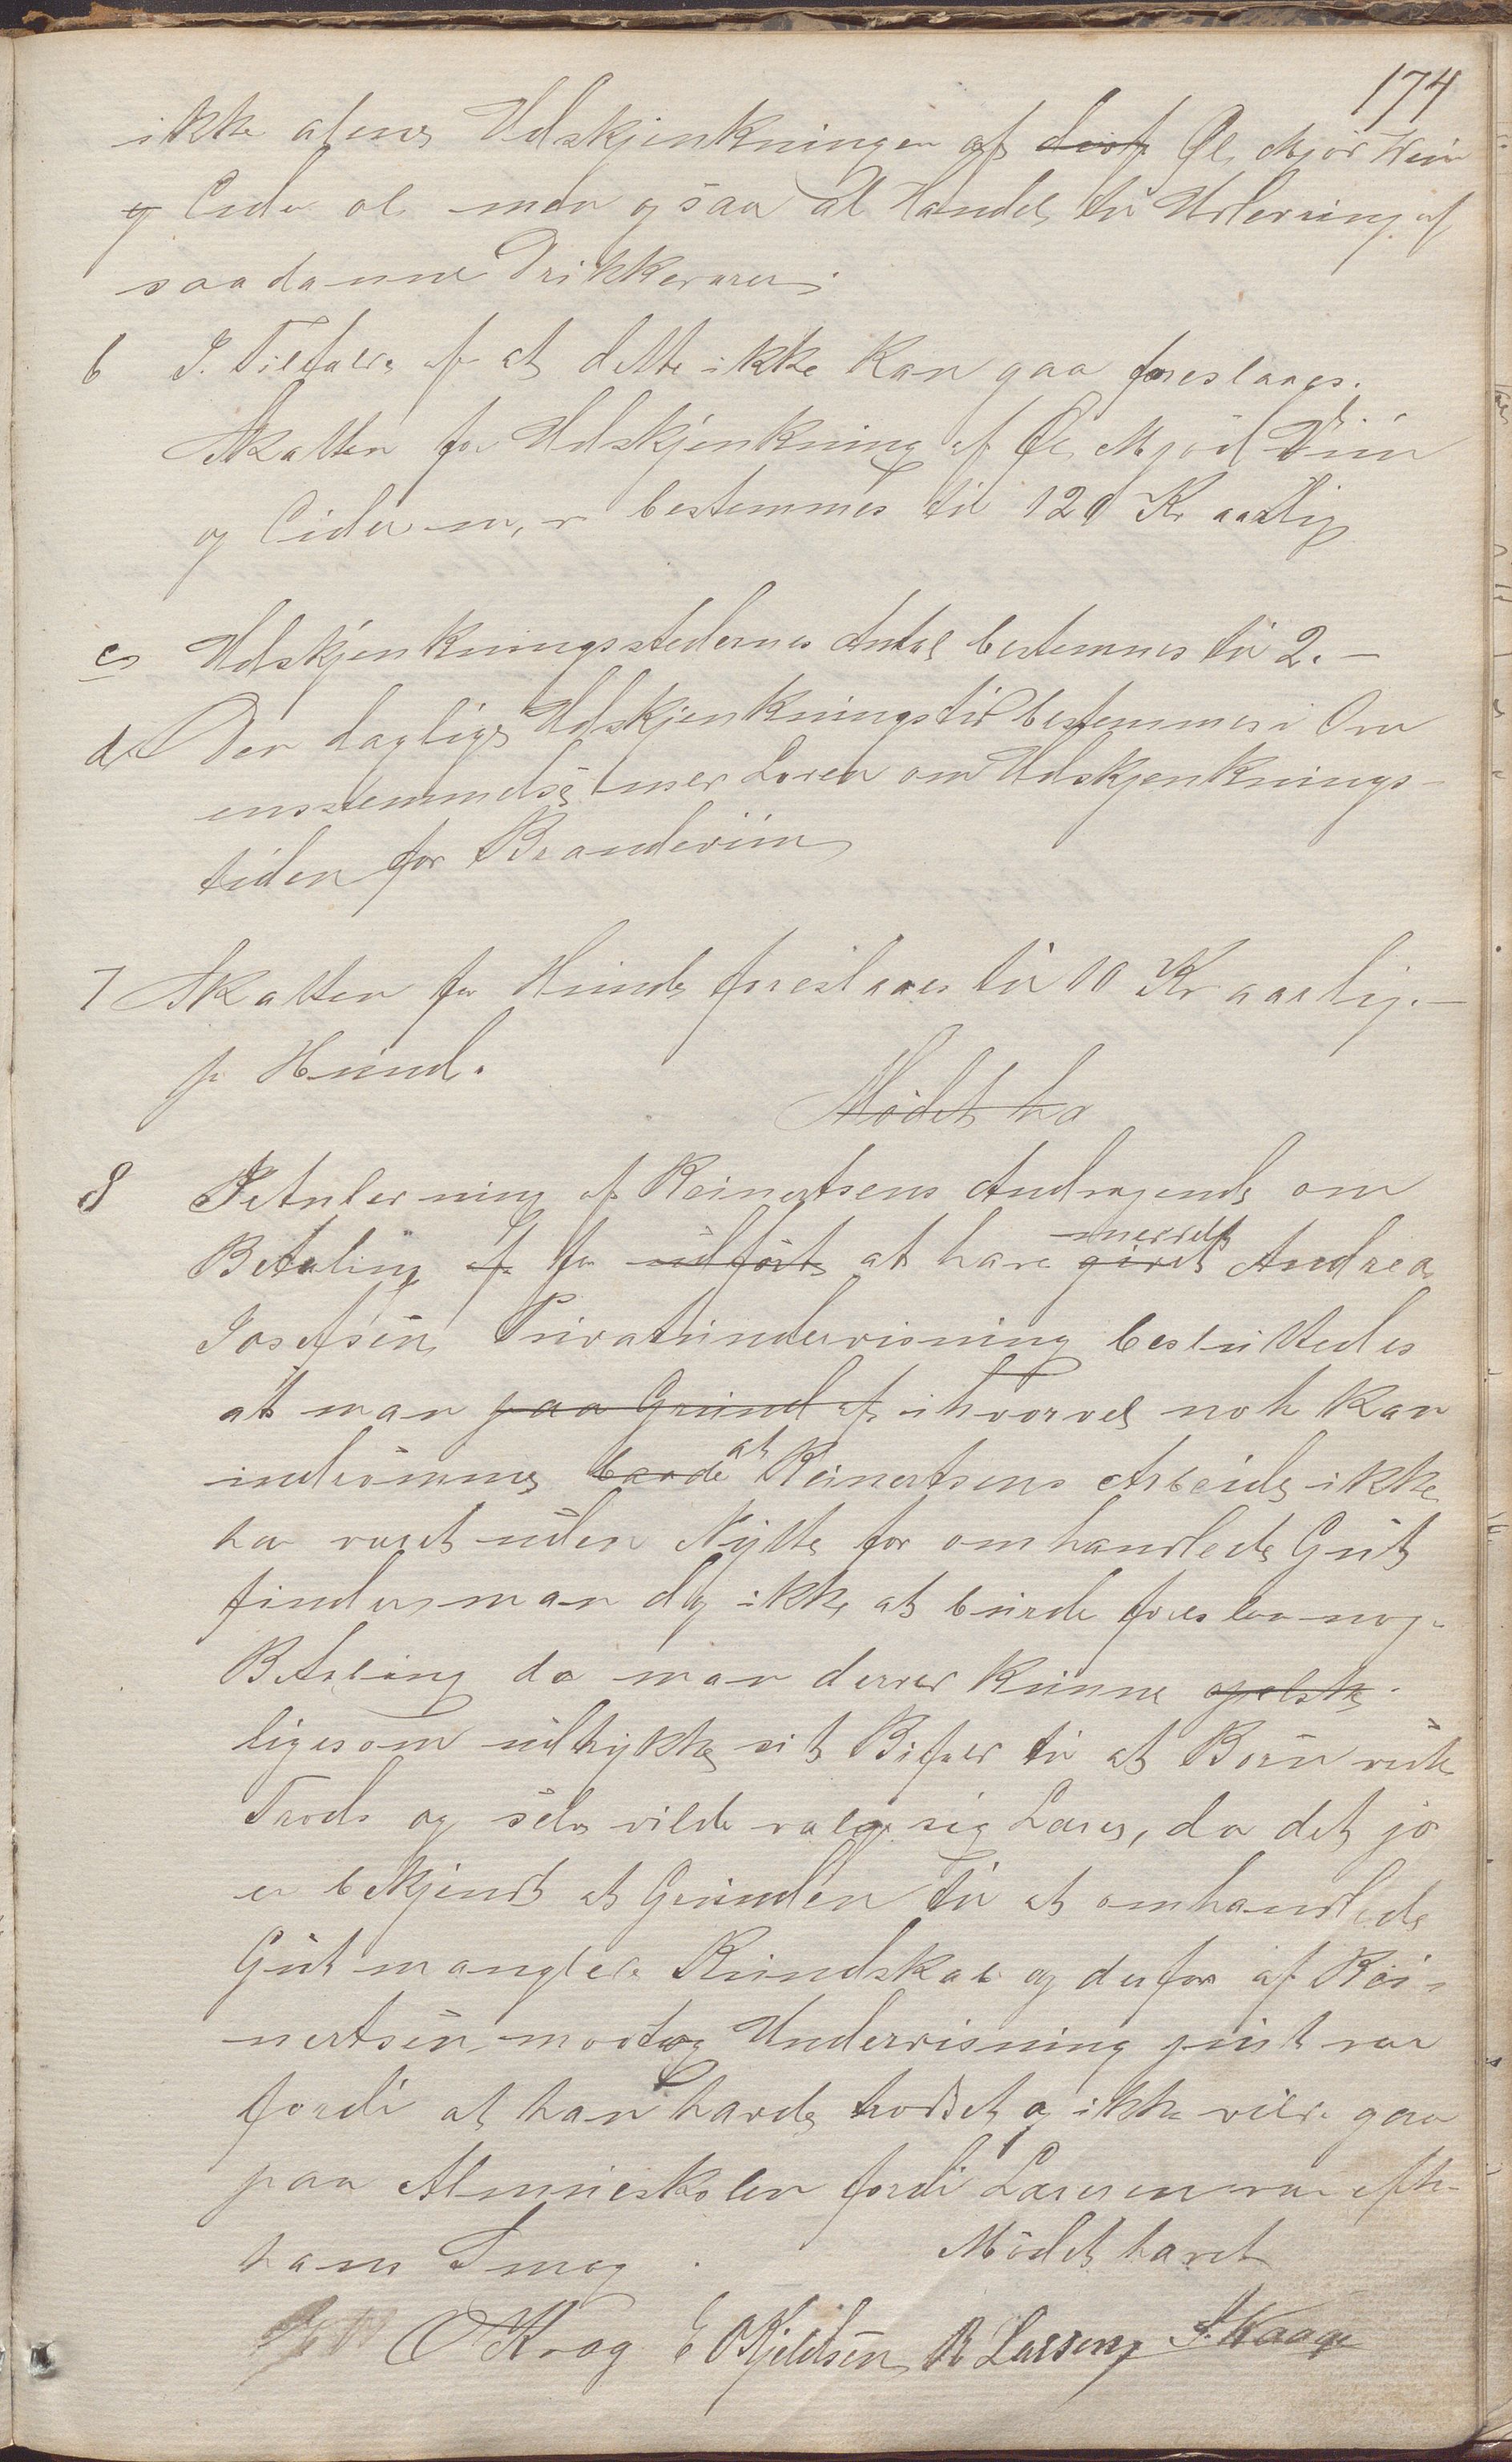 174
ikke alene Udskjenkningen af Øl, Mjød Viin
og Cider ol men ogsaa al Handel til Udlevering af
saadanne Drikkevarer.
b I Tilfælde af at dette ikke kan gaa foreslaaes.
Skatten for Udskjenkning af Øl, Mjød Viin
og Cider m, v bestemmes til 120 Kr aarlig
c, Udskjenkningsstedernes Antal bestemmes til 2. -
d, Den daglige Udskjenkningstid bestemmes i Over
ensstemmelse med Loven om Udskjenknings-
tiden for Brændeviin
7 Skatten for Hunde foreslaaes til 10 Kr aarlig. -
pr Hund.
Mødet ha
8 I Anledning af Reinertsens Andragende om
Betaling af for udførte at have givet meddelt Andrea
Josefsen Privatundervisning besluttedes
at man paa Grund af ihvorvel nok kan
indrømme baade at Reinertsens Arbeide ikke
har været uden Nytte for omhandlede Gut
finder man dog ikke at burde foreslaa nogen
Betaling da man derved kunne
ligesom udtrykke sit Bifald til at Børn viste
Trods og selv vilde vælge sig Lærer, da det jo
er bekjendt at Grunden til at omhandlede
Gut manglede Kundskab og derfor af Rei-
nertsen modtog Undervisning just var
fordi at han havde trodset og ikke vilde gaa
paa Almueskolen fordi Læreren var efter
hans Smag. Mødet hævet
O Krog E O Kjeldsen R Larsen J. Waage